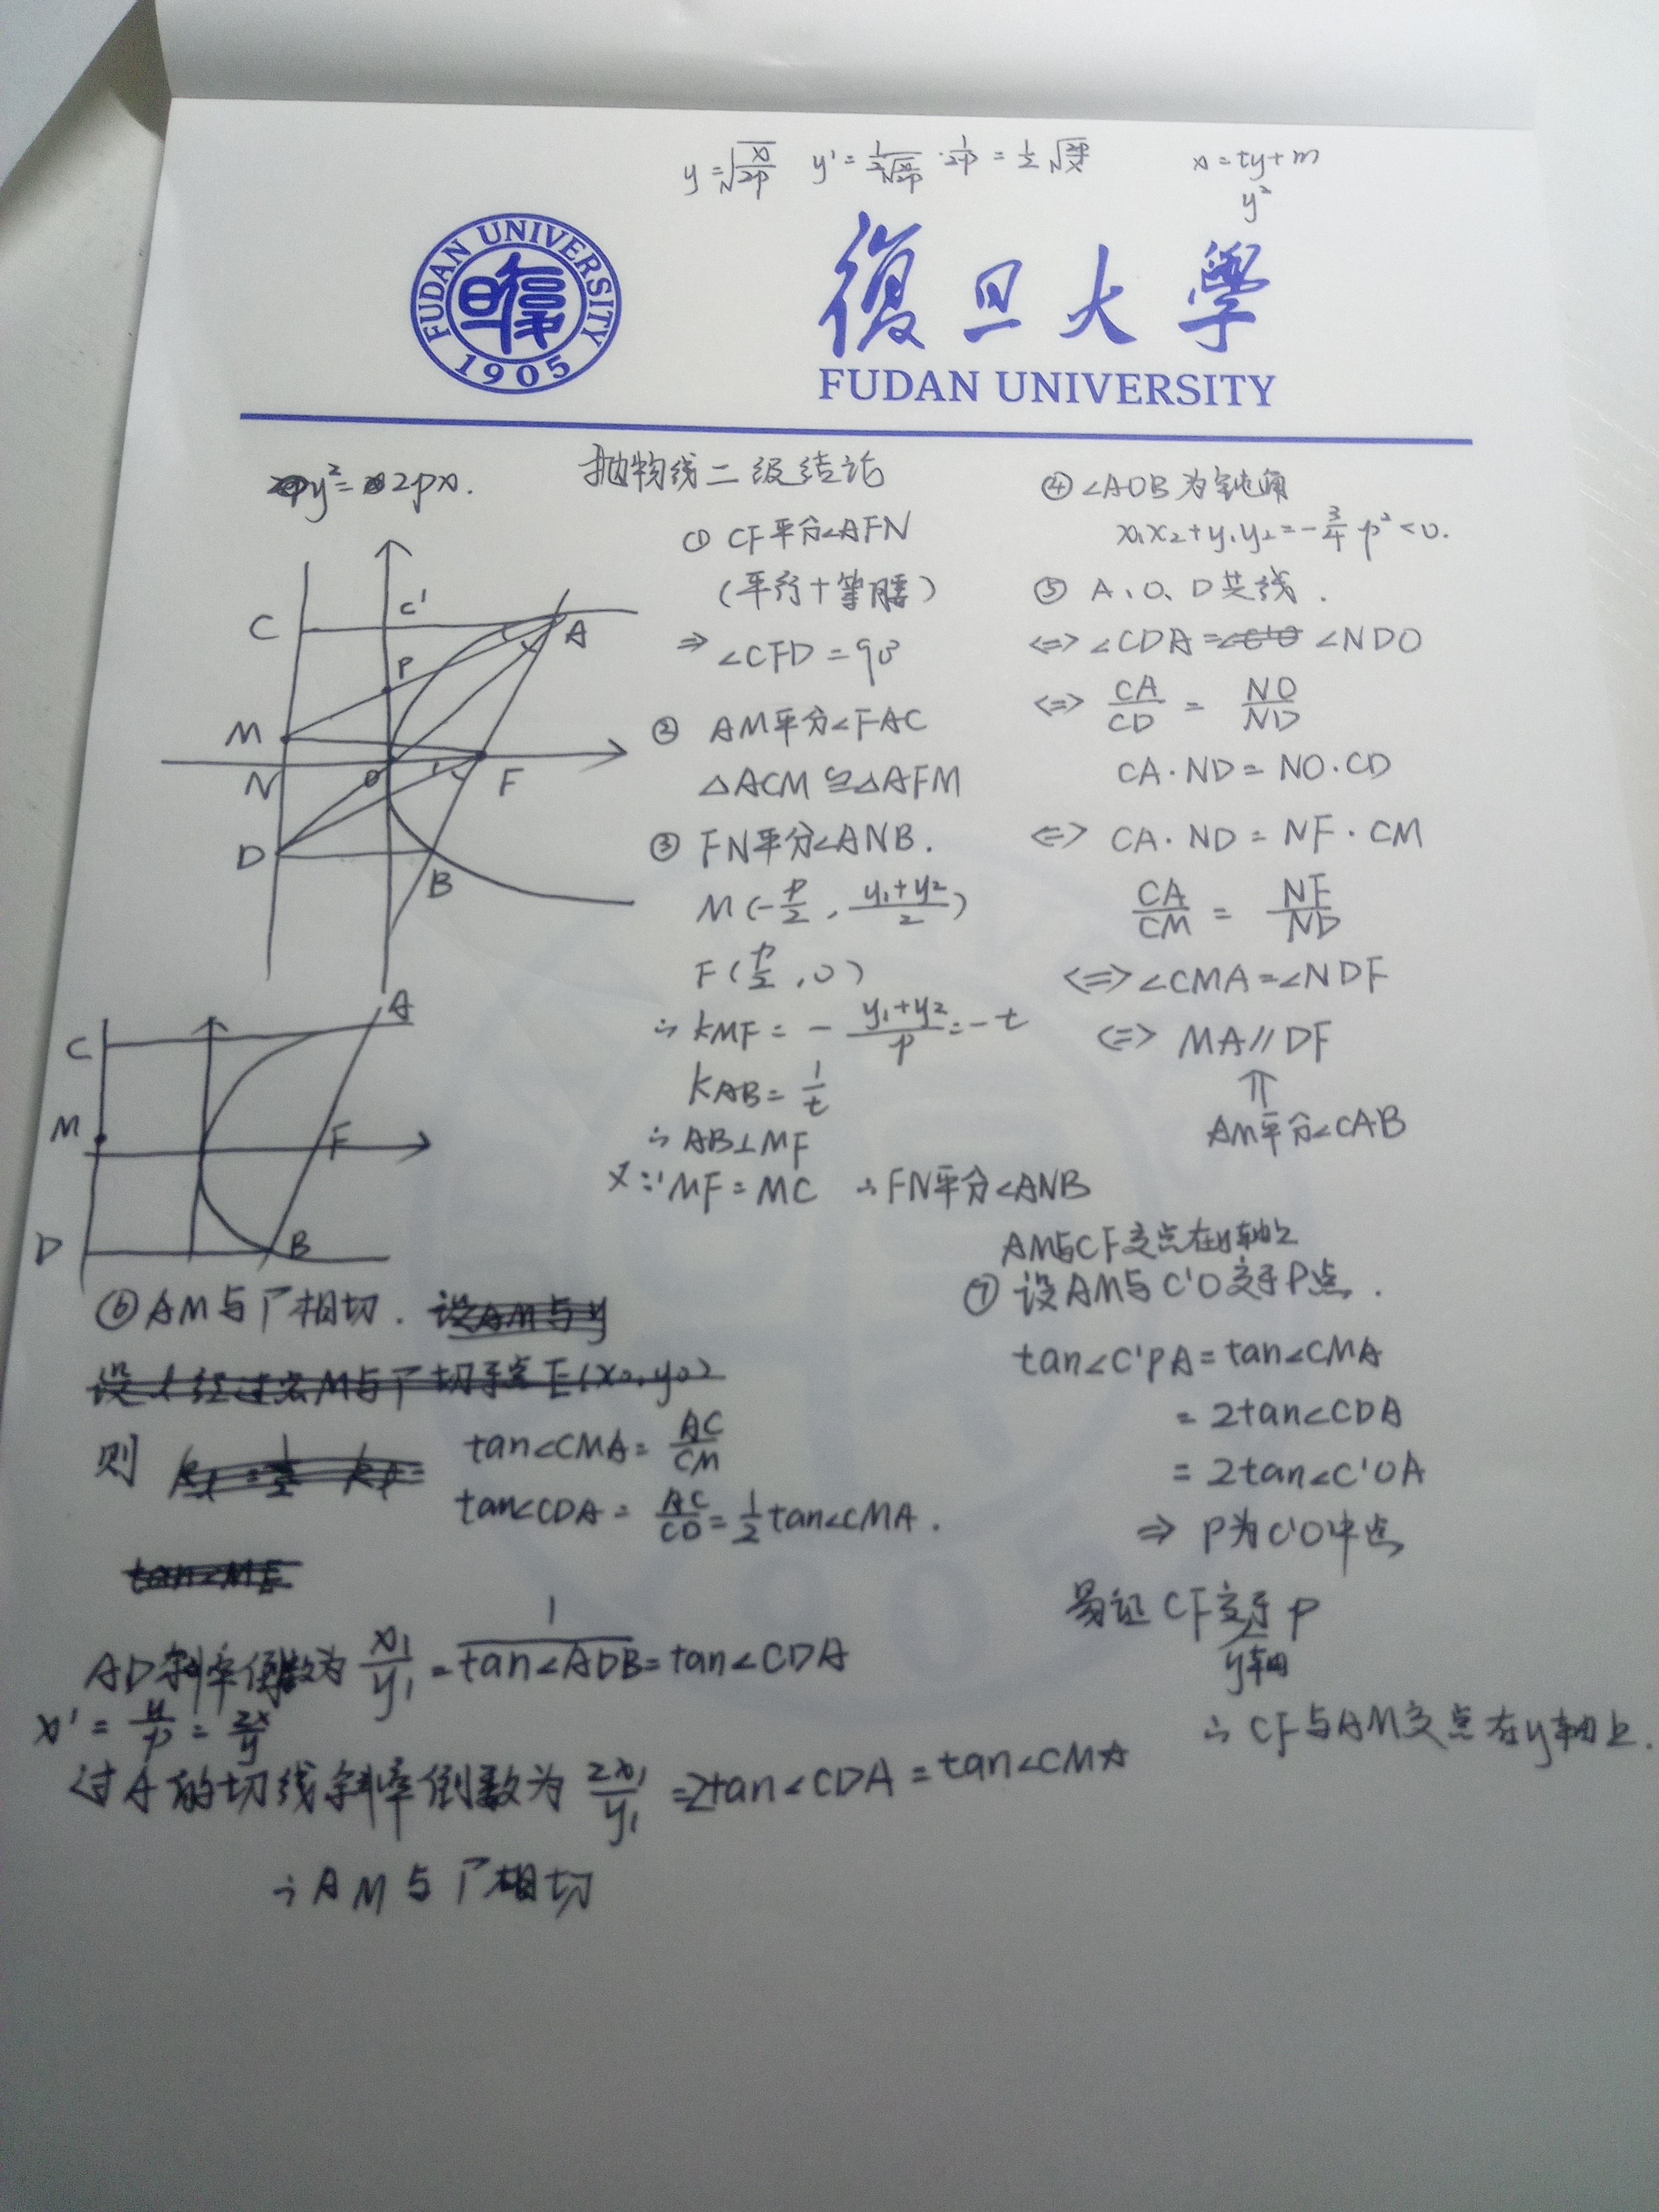 y=√(x/2p) y'=1/(2√(x/2p))·1/2p=1/2√(2p/x) x=ty+m
y²
FUDAN UNIVERSITY
1905
復旦大學
FUDAN UNIVERSITY
y²=2px.
抛物线二级结论
C
C'
A
P
M
N
O
F
D
B
① CF平分∠AFN
(平行+等腰)
⇒ ∠CFD=90°
② AM平分∠FAC
△ACM≌△AFM
③ FN平分∠ANB.
M(-p/2, (y₁+y₂)/2)
F(p/2,0)
∴ kMF=-(y₁+y₂)/p=-t
kAB=1/t
∴ AB⊥MF
又∵MF=MC ∴FN平分∠ANB
④ ∠AOB为钝角
x₁x₂+y₁y₂=-3/4 p²<0.
⑤ A、O、D共线.
⇔ ∠CDA=∠NDO
⇔ CA/CD = NO/ND
CA·ND=NO·CD
⇔ CA·ND=NF·CM
CA/CM = NF/ND
⇔ ∠CMA=∠NDF
⇔ MA∥DF
⇑
AM平分∠CAB
A
C
M
F
D
B
⑥ AM与Γ相切. 设AM与y
设l经过点M与Γ切于点E(x₀,y₀)
则 tan∠CMA=AC/CM
tan∠CDA=AC/CD=1/2tan∠CMA.
AD斜率倒数为x₁/y₁=1/tan∠ADB=tan∠CDA
x'=y/p=2x/y
过A的切线斜率倒数为2x₁/y₁=2tan∠CDA=tan∠CMA
∴AM与Γ相切
AM与CF交点在y轴上
⑦ 设AM与C'O交于P点.
tan∠C'PA=tan∠CMA
=2tan∠CDA
=2tan∠C'OA
⇒ P为C'O中点
易证CF交于P
y轴
∴CF与AM交点在y轴上.